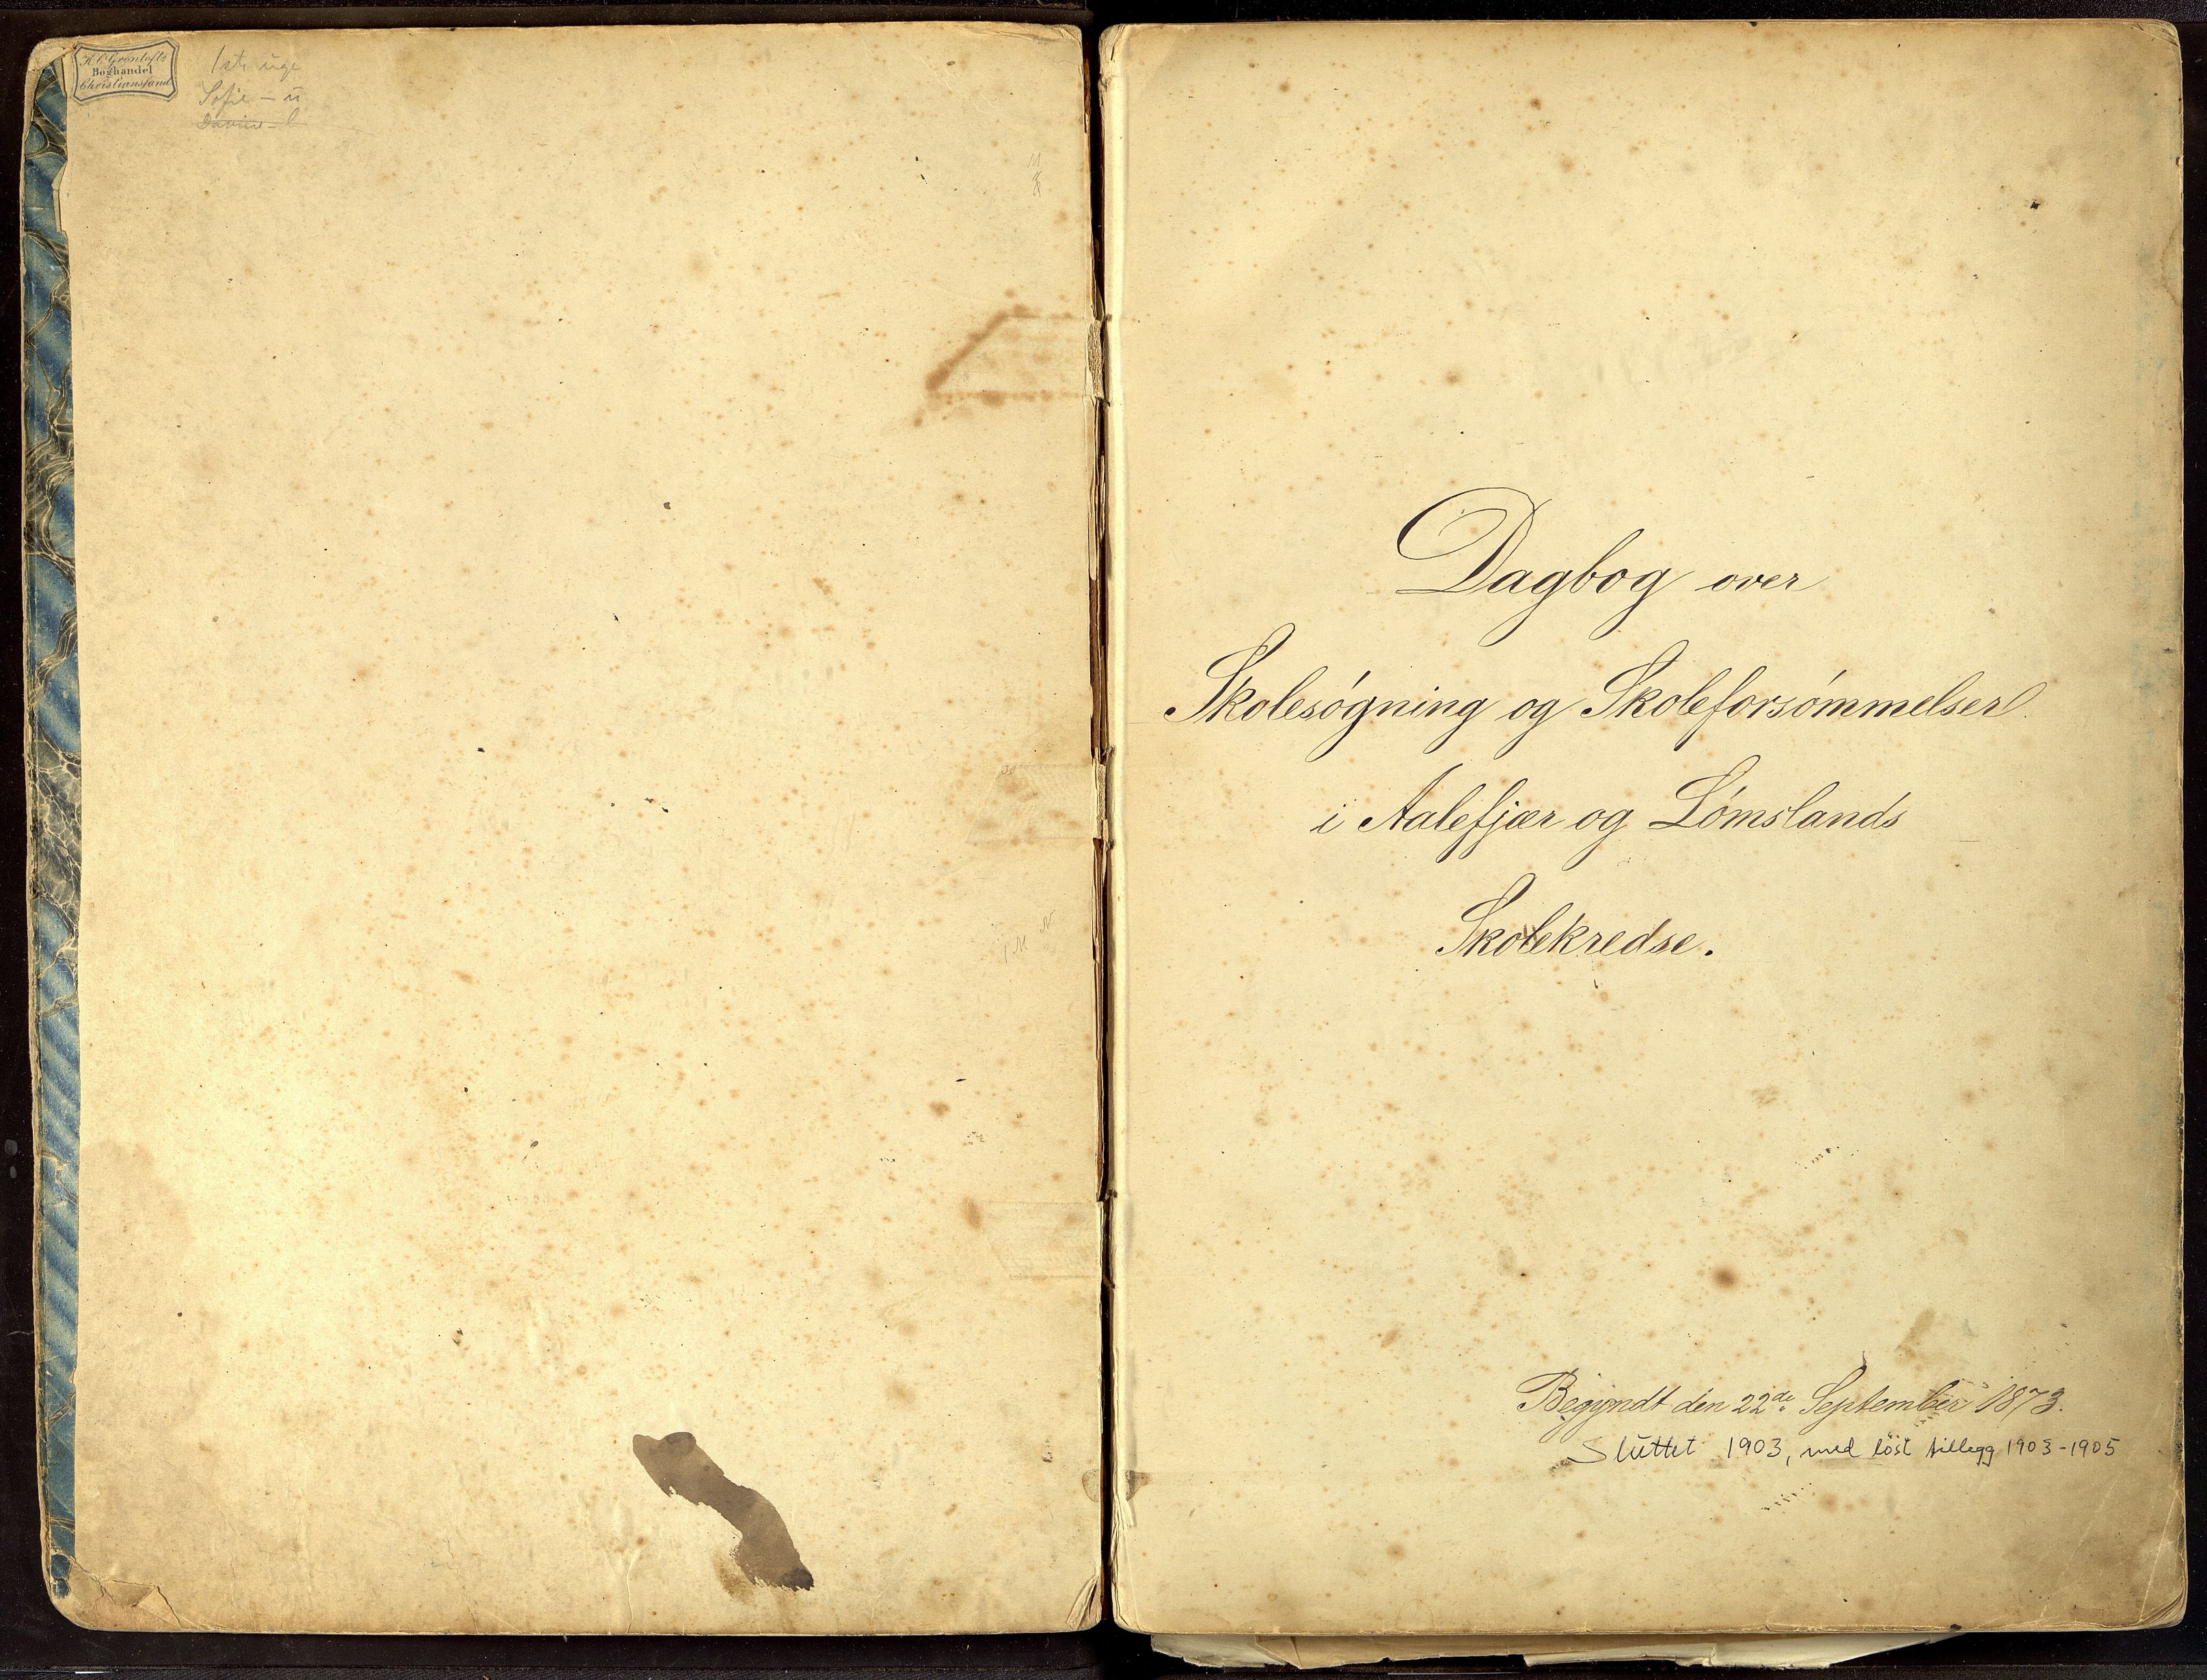 K. C. Grøntofts
Boghandel
Christianssand
1ste uge
Sofie - u
Dagbog over
Skolesøgning og Skoleforsømmelser
i Aalefjær og Lømslands
Skolekredse.
Begyndt den 22de September 1873.
Sluttet 1903, med löst tillegg 1903-1905